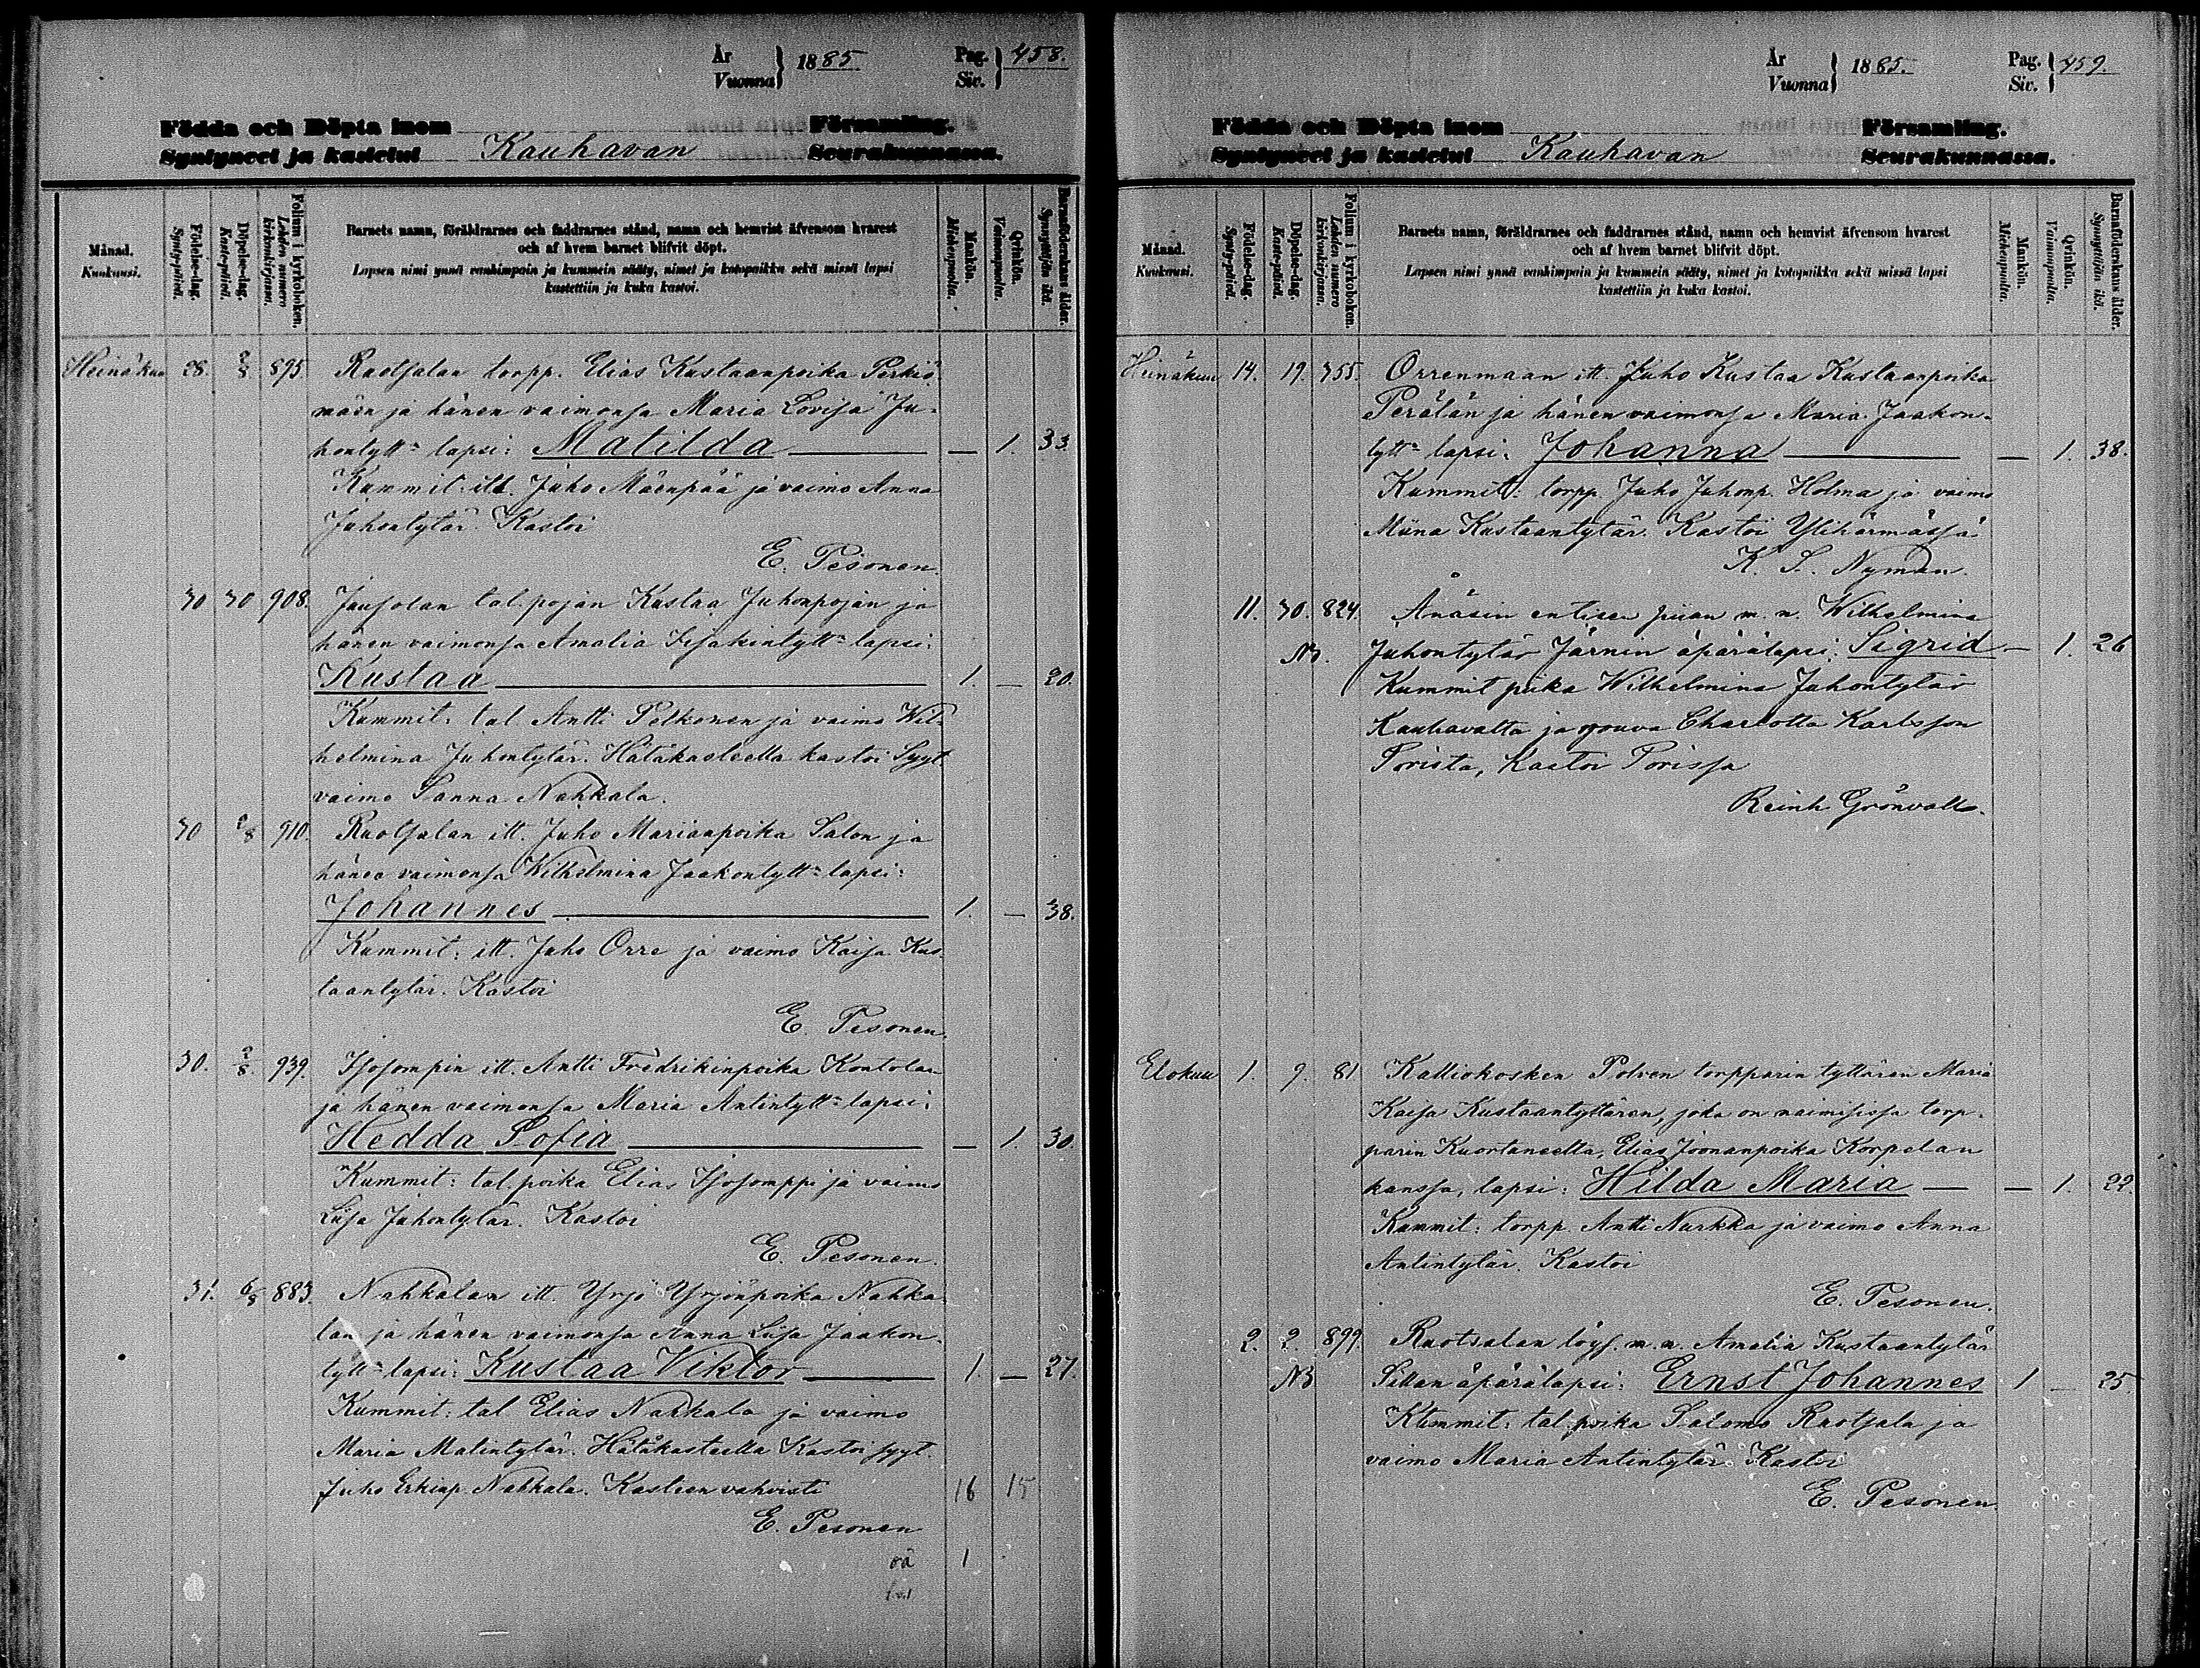 År
Vuonna } 1885. Pag.
Siv. } 458.
Födda och Döpta inom Församling.
Syntyneet ja kastetut Kauhavan Seurakunnassa.
Månad.
Kuukausi.
Födelse-dag.
Synty-päivä.
Döpelse-dag.
Kaste-päivä.
Folium i kyrkoboken.
Lehden numero kirkonkirjassa.
Barnets namn, föräldrarnes och faddrarnes stånd, namn och hemvist äfvensom hvarest
och af hvem barnet blifvit döpt.
Lapsen nimi ynnä vanhimpain ja kummein sääty, nimet ja kotopaikka sekä missä lapsi
kastettiin ja kuka kastoi.
Mankön.
Miehenpuolta.
Qvinkön.
Vaimonpuolta.
Barnaföderskans ålder.
Synnyttäjän ikä.
Heinäkuu 28. 2/8 895. Ruotsalan torpp. Elias Kustaanpoika Perkiö-
mäen ja hänen vaimonsa Maria Lovisa Ju-
hontytt= lapsi: Matilda — 1. 33.
Kummit: itt. Juho Mäenpää ja vaimo Anna
Juhontytär. Kastoi
E. Pesonen.
30 30 908. Jausolan tal. pojan Kustaa Juhonpojan ja
hänen vaimonsa Amalia Iisakintytt= lapsi:
Kustaa 1. — 20.
Kummit: tal. Antti Pelkonen ja vaimo Wil-
helmina Juhontytär. Hätäkasteella kastoi Syyt.
vaimo Sanna Nahkala.
30 2/8 910. Ruotsalan itt. Juho Marianpoika Salon ja
hänen vaimonsa Wilhelmina Jaakontytt= lapsi:
Johannes 1. — 38.
Kummit: itt. Juho Orre ja vaimo Kaisa Kus-
taantytär. Kastoi
E. Pesonen.
30. 2/8. 939. Isosompin itt. Antti Fredrikinpoika Kontolan
ja hänen vaimonsa Maria Antintytt= lapsi:
Hedda Sofia — 1. 30.
Kummit: tal. poika Elias Isosomppi ja vaimo
Liisa Juhontytär. Kastoi
E. Pesonen.
31. 6/8 883. Nahkalan itt. Yrjö Yrjönpoika Nahka-
lan ja hänen vaimonsa Anna Liisa Jaakon-
tytt= lapsi: Kustaa Viktor 1. — 27.
Kummit: tal. Elias Nahkala ja vaimo
Maria Matintytär. Hätäkasteella Kastoi syyt.
Juho Erkinp. Nahkala. Kasteen vahvisti 16 15
E. Pesonen
oä 1
År
Vuonna } 1885. Pag.
Siv. } 459.
Födda och Döpta inom Församling.
Syntyneet ja kastetut Kauhavan Seurakunnassa.
Månad.
Kuukausi.
Födelse-dag.
Synty-päivä.
Döpelse-dag.
Kaste-päivä.
Folium i kyrkoboken.
Lehden numero kirkonkirjassa.
Barnets namn, föräldrarnes och faddrarnes stånd, namn och hemvist äfvensom hvarest
och af hvem barnet blifvit döpt.
Lapsen nimi ynnä vanhimpain ja kummein sääty, nimet ja kotopaikka sekä missä lapsi
kastettiin ja kuka kastoi.
Mankön.
Miehenpuolta.
Qvinkön.
Vaimonpuolta.
Barnaföderskans ålder.
Synnyttäjän ikä.
Heinäkuu 14. 19. 755. Orrenmaan itt. Juho Kustaa Kustaanpoika
Perälän ja hänen vaimonsa Maria Jaakon-
tytt= lapsi: Johanna — 1. 38.
Kummit: torpp. Juho Juhonp. Holma ja vaimo
Miina Kustaantytär. Kastoi Ylihärmässä
K. S. Nyman.
11. 30. 824. Änäsin entisen piian m. n. Wilhelmina
NB. Juhontytär Järnin äpärälapsi: Sigrid — 1. 26
Kummit piika Wilhelmina Juhontytär
Kauhavalta ja rouva Charlotta Karlsson
Porista, Kastoi Porissa
Reinh Grönvall.
Elokuu 1. 9. 81 Kalliokosken Polven torpparin tyttären Maria
Kaisa Kustaantyttären, joka on naimisissa torp-
parin Kuortaneelta, Elias Joonanpoika Korpelan
kanssa, lapsi: Hilda Maria — 1. 22.
Kummit: torpp. Antti Nurkka ja vaimo Anna
Antintytär. Kastoi
E. Pesonen.
2. 2. 899. Ruotsalan löys. m. n. Amalia Kustaantytär
NB Sillan äpärälapsi: Ernst Johannes 1 — 25
Kummit: tal. poika Salomo Ruotsala ja
vaimo Maria Antintytär. Kastoi
E. Pesonen